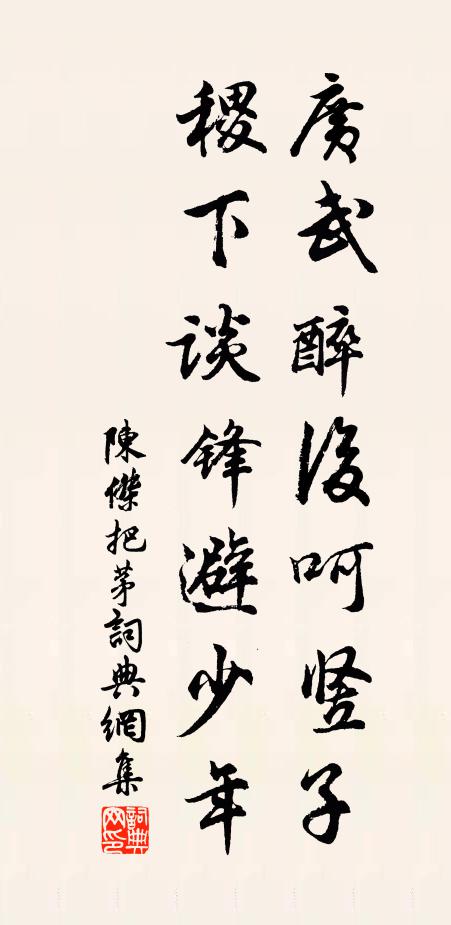 廣武醉後呵豎子
稷下談鋒避少年
陳傑把茅詞典網集
詞典网印